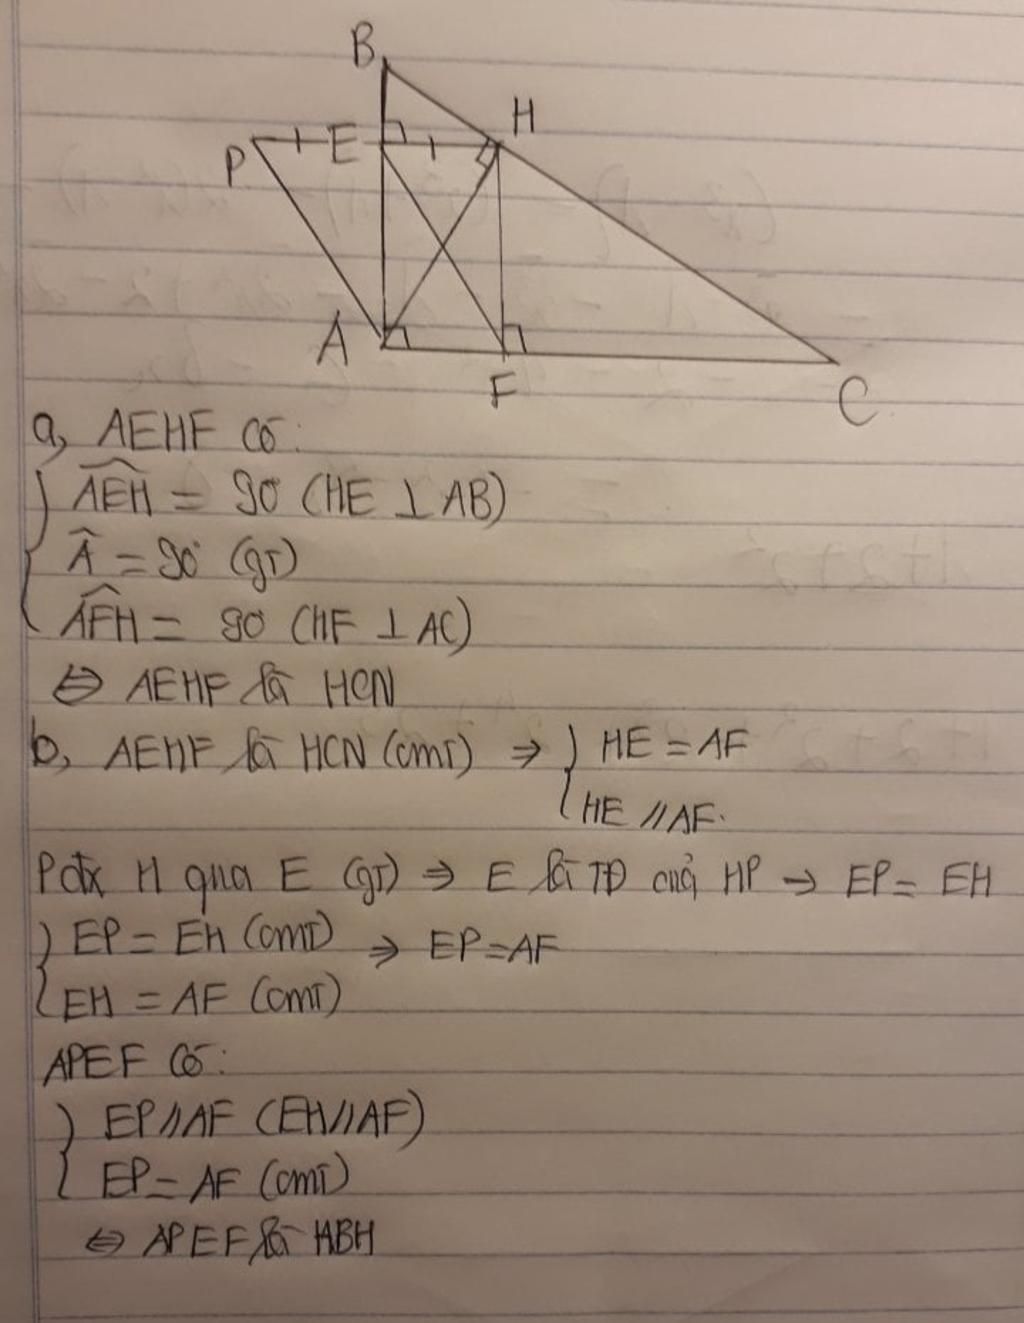 B
H
P
E
A
F
C
a, AEHF có:
{ AEH = 90° (HE ⊥ AB)
Â = 90° (gt)
AFH = 90° (HF ⊥ AC)
⇔ AEHF là HCN
b, AEHF là HCN (cmt) ⇒ { HE = AF
HE // AF.
P đx H qua E (gt) ⇒ E là TĐ của HP → EP = EH
{ EP = EH (cmt) ⇒ EP = AF
EH = AF (cmt)
APEF có:
{ EP // AF (EH // AF)
EP = AF (cmt)
⇔ APEF là HBH